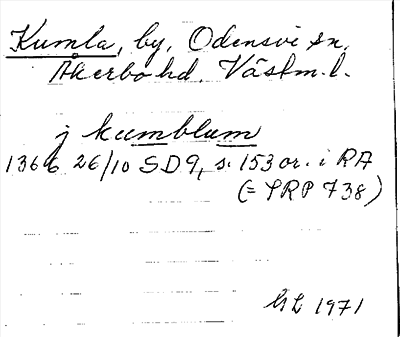 Kumla, by, Odensvi sn,
Åkerbo hd. Västm.l.
j kumblum
1366 26/10 SD 9, s. 153 or. i RA
(= SRP 738)
GL 1971